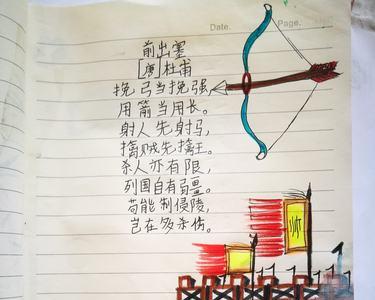 Date. Page.
前出塞
[唐]杜甫
挽弓当挽强,
用箭当用长。
射人先射马,
擒贼先擒王。
杀人亦有限,
列国自有疆。
苟能制侵陵,
岂在多杀伤。
帅